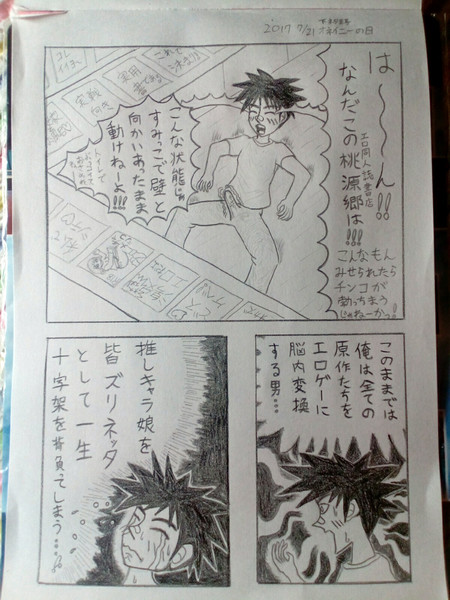 2017 7/21
オネイニーの日
は〜〜ん!!
なんだこの桃源郷は!!!
エロ同人誌書店
こんなもん
みせられたら
チンコが
勃っちまう
じゃねーかっ!
こんな状態じゃ
すみっこで壁と
向かいあったまま
動けねーよ!!!
実戦
向き
実用
書である
これで
決まり!!
このままでは
俺は全ての
原作たちを
エロゲーに
脳内変換
する男……
推しキャラ娘を
皆ズリネッタ
として一生
十字架を背負ってしまう……